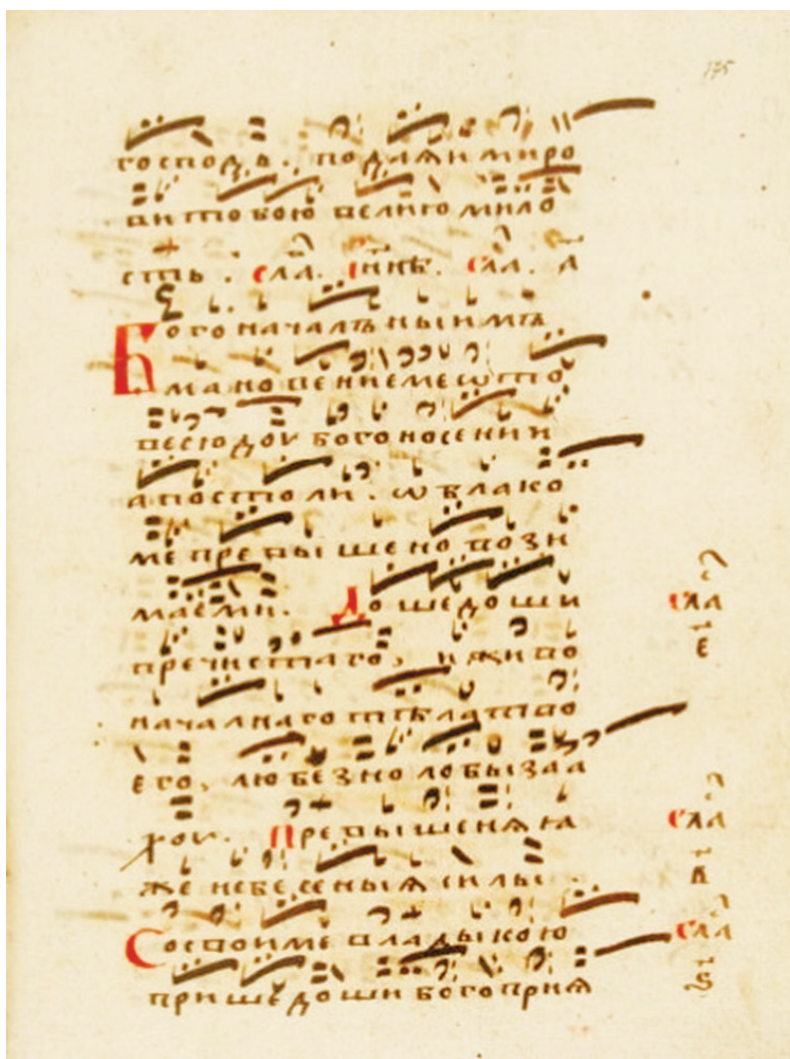 175
господь. подаꙗи миро
ви тобою велию мило
сть. сла. инꙑнѣ. сла. а
Бого началънꙑимъ
мановениемеѡто
весюдоу богоносении
апостоли. ѡблако
ме превꙑшено возн
маеми. Дошедоши
пречистаго, и живо
началнаго тѣлатво
его, любезно лобꙑзаа
хоу. Превꙑшенꙗꙗ
же небесенꙑꙗ силꙑ.
Сосвоиме владꙑкою
пришедоши богоприꙗ
сла
е
сла
в
сла
ѕ